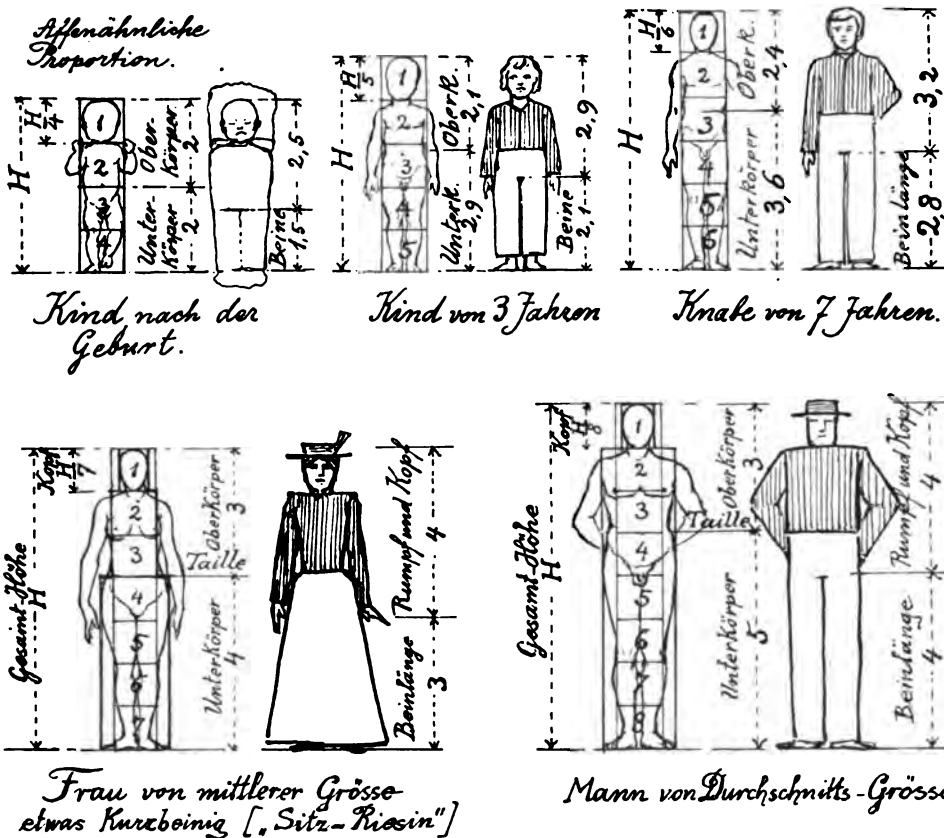 Affenähnliche
Proportion.
H
H/4
1
2
3
4
Ober-
Körper
2
Unter-
Körper
2
2,5
Beine
1,5
Kind nach der
Geburt.
H
H/5
1
2
3
4
5
Oberk.
2,1
Unterk.
2,9
2,9
Beine
2,1
Kind von 3 Jahren
H
H/6
1
2
3
4
5
6
Oberk.
2,4
Unterkörper
3,6
3,2
Beinlänge
2,8
Knabe von 7 Jahren.
Gesamt-Höhe
H
Kopf
H/7
1
2
3
4
5
6
7
Oberkörper
3
Taille
Unterkörper
4
Rumpf und Kopf
4
Beinlänge
3
Frau von mittlerer Grösse
etwas Kurzbeinig ["Sitz-Riesin"]
Gesamt-Höhe
H
Kopf
H/8
1
2
3
4
5
6
7
8
Oberkörper
3
Taille
Unterkörper
5
Rumpf und Kopf
4
Beinlänge
4
Mann von Durchschnitts-Grösse